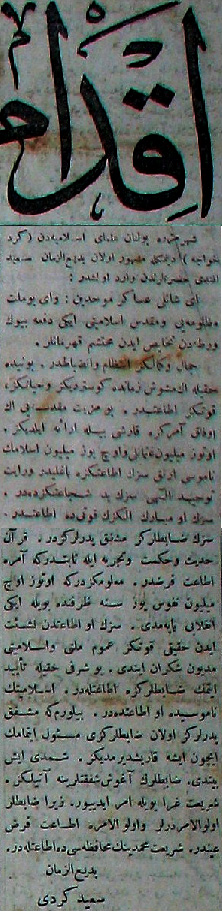 اقدام
شهرمزده بولنان علمای اسلامیه‌دن (کرد
خواجه) دیمکله مشهور اولان بدیع‌الزمان سعید
افندی حضرتلرندن وارد اولمشدر:
ای شانلی عساکر موحدین! وای بو ملت
مظلومه‌یی ومقدس اسلامیتی ایکی دفعه بیوک
ورطه‌دن تخلیص ایدن محتشم قهرمانلر.
جمال وکمالکز انتظام وانضباطدر. بونیده
حقیله اك مشوش زمانده کوستردیکز وحیاتکز،
قوتکز اطاعتدر. بو مزیت مقدسه‌یی اك
اوفاق آمرکزه قارشی بیله ارائه ایدیکز.
اوتوز میلیون عثمانلی واوچ یوز میلیون اسلامك
ناموسی آرتق سزك اطاعتکزه باغلیدر ورایت
توحید الهی سزك ید شجاعتکزده‌در.
سزك او مبارك الکزك قوتی‌ده اطاعتدر.
سزك ضابطلرکز مشفق پدرلرکزدر. قرآن
حدیث وحکمت وتجربه ایله ثابتدرکه آمره
اطاعت فرضدر. معلومکزدرکه اوتوز اوچ
میلیون نفوس یوز سنه ظرفنده بویله ایکی
انقلابی یاپه‌مدی. سزك او اطاعتدن نشئت
ایدن حقیقی قوتکز عموم ملتی واسلامیتی
مدیون شکران ایتدی. بو شرفی حقیله تأیید
ایتمك ضابطلرکزه اطاعتله‌در. اسلامیتك
ناموسیده او اطاعتده‌در. بیلورم که مشفق
پدرلرکز اولان ضابطلرکزی مسئول ایتمامك
ایچون ایشه قاریشدیرمدیکز. شمدی ایش
بیتدی. ضابطلرك آغوش شفقتلرینه آتیلکز.
شریعت غرا بویله امر ایدیور. زیرا ضابطلر
اولوالامردرلر واولوالامره اطاعت فرض
عیندر. شریعت محمدینك محافظه‌سی‌ده اطاعتله‌در.
بدیع‌الزمان
سعید کردی